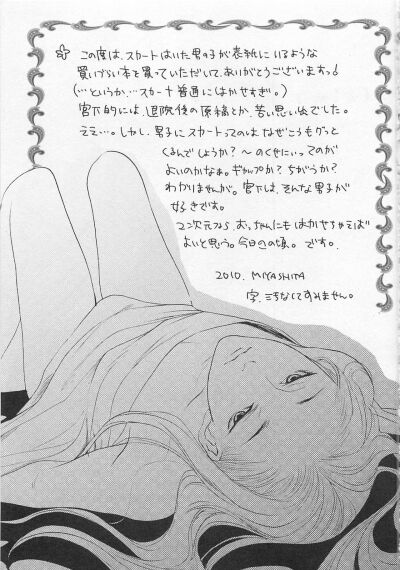 この度は、スカートはいた男の子が表紙にいるような
買いづらい本を買っていただいて、ありがとうございます。
(…というか…スカート普通にはかせすぎ。)
宮下的には、退院後の原稿とか、苦い思い出でした。
ええ…。しかし、男子にスカートってのはなぜこうもグッと
くるんでしょうか？〜のくせにぃってのが
よいのかなぁ。ギャップか？ちがうか？
わかりませんが。宮下は、そんな男子が
好きです。
2次元なら、おっちゃんにもはかせちゃえば
よいと思う。今日この頃。です。
2010. MIYASHITA
字、きちなくてすみません。